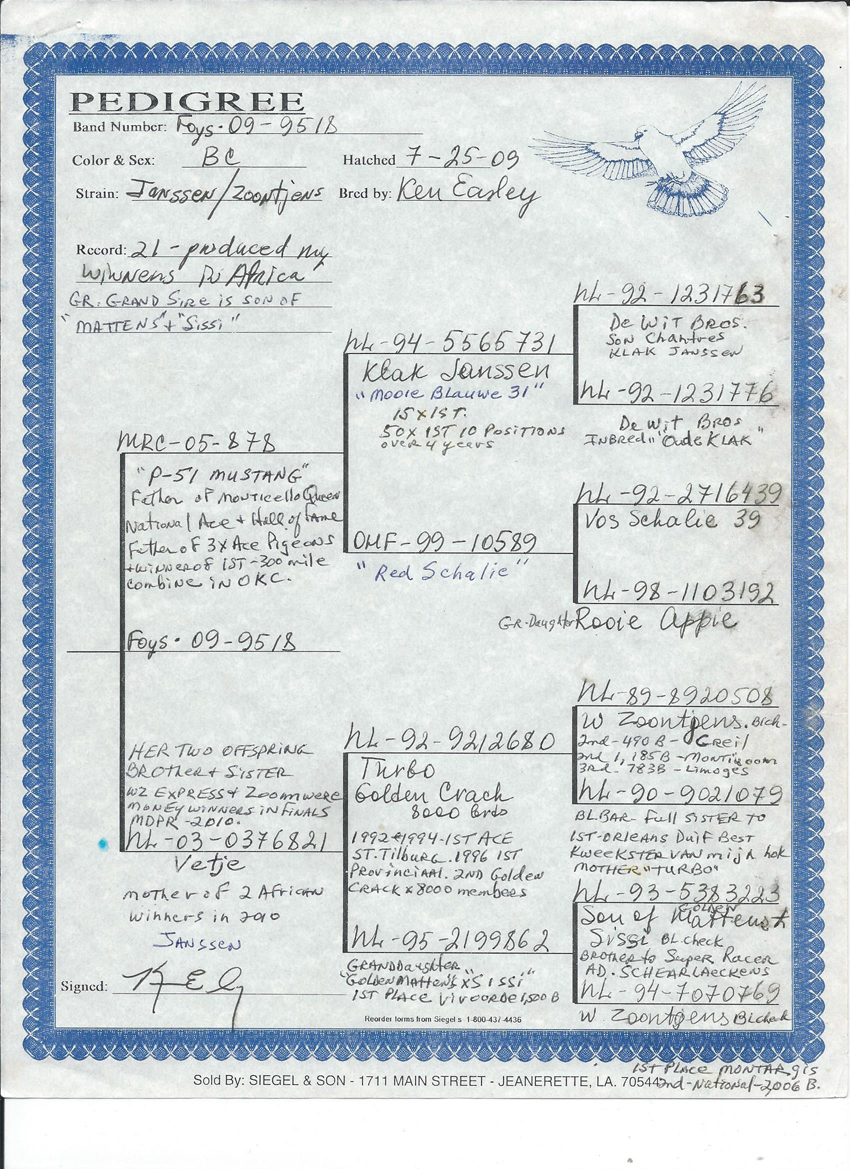 PEDIGREE
Band Number: Foys-09-9518
Color & Sex: BC Hatched 7-25-09
Strain: Janssen/Zoontjens Bred by: Ken Easley
Record: 21-produced my
winners in Africa
GR. GRAND SIRE IS SON OF
"MATTENS" + "Sissi"
NL-92-1231763
De Wit Bros.
Son Chantres
KLAK JANSSEN
NL-94-5565731
Klak Janssen
"Mooie Blauwe 31"
15 x 1ST.
50X 1ST 10 POSITIONS
over 4 years
NL-92-1231776
De Wit Bros
INBRED "Oude KLAK"
MRC-05-878
"P-51 MUSTANG"
Father of Monticello Queen
National Ace + Hall of Fame
Father of 3X Ace Pigeons
+ winner of 1ST-300 mile
combine in OKC.
NL-92-2716439
Vos Schalie 39
OMF-99-10589
"Red Schalie"
NL-98-1103192
GR-Daughter Rooie Appie
Foys-09-9518
NL-89-8920508
W Zoontjens. Blch-
2nd-490 B- Creil
2nd 1,185B-Montluoom
3rd-783B-Limoges
NL-92-9212680
Turbo
Golden Crack
8000 Brds
1992+1994-1ST ACE
ST. Tilburg. 1996 1ST
Provinciaal. 2ND Golden
CRACK x 8000 members
NL-90-9021079
BL.BAR- Full SISTER TO
1ST-ORLEANS Duif Best
Kweekster van mijn hok
MOTHER "TURBO"
HER TWO OFFSPRING
BROTHER + SISTER
WZ EXPRESS + Zoom were
MONEY WINNERS IN FINALS
MDPR-2010.
NL-03-0376821
Vetje
mother of 2 African
winners in 2010
JANSSEN
NL-93-5383223
Son of Golden Mattens +
Sissi BL check
BROTHER to Super Racer
AD. SCHEARLAECKENS
NL-95-2199862
GRANDDAughter
"Golden Mattens" x "Sissi"
1ST PLACE Vivoorde 1,500 B
NL-94-7070769
W Zoontjens Bl check
1ST PLACE MONTARgis
2nd-National-2006 B.
Signed:
Reorder forms from Siegel s 1-800-437-4436
Sold By: SIEGEL & SON - 1711 MAIN STREET - JEANERETTE, LA. 70544